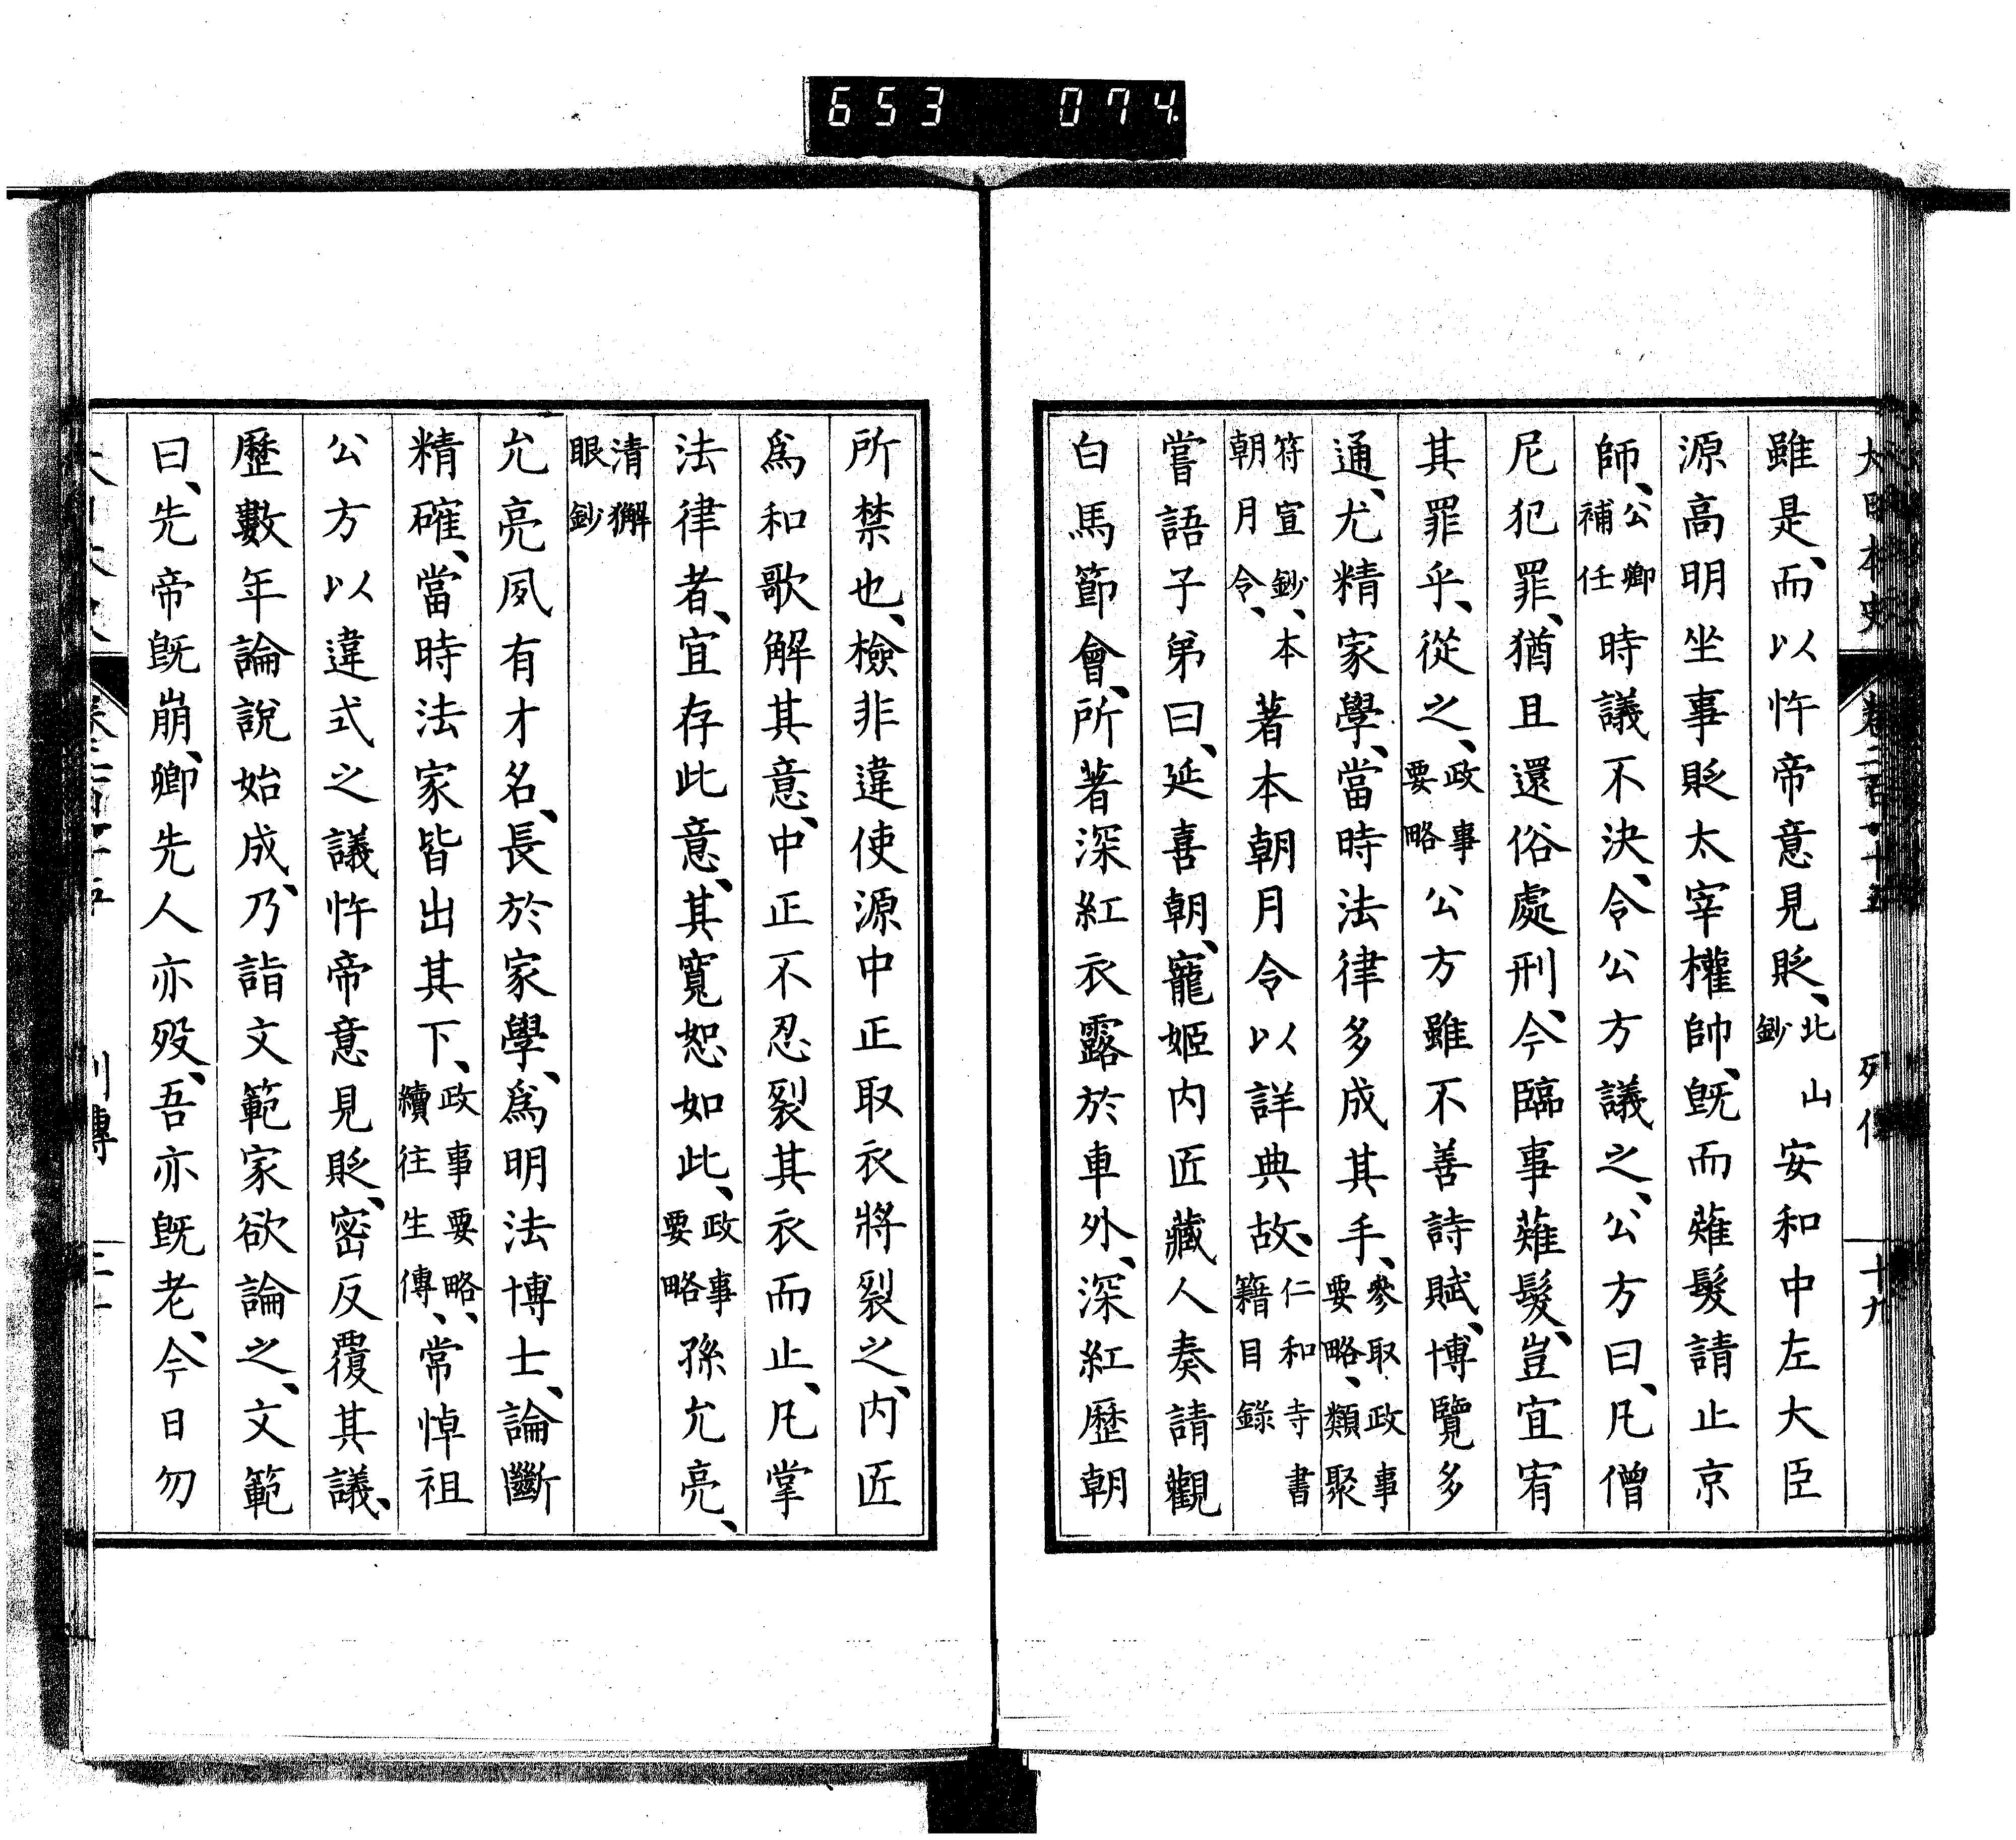 653 074
大日本史 卷二百十五 列傳 十九
雖是、而以忤帝意見貶、北山鈔 安和中左大臣
源高明坐事貶太宰權帥、既而薙髮請止京
師、公卿補任 時議不決、令公方議之、公方曰、凡僧
尼犯罪、猶且還俗處刑、今臨事薙髮、豈宜宥
其罪乎、從之、政事要略 公方雖不善詩賦、博覽多
通、尤精家學、當時法律多成其手、參取政事要略、類聚
符宣鈔、本朝月令、 著本朝月令以詳典故、仁和寺書籍目錄
嘗語子弟曰、延喜朝、寵姬內匠藏人奏請觀
白馬節會、所著深紅衣露於車外、深紅歷朝
所禁也、檢非違使源中正取衣將裂之、內匠
爲和歌解其意、中正不忍裂其衣而止、凡掌
法律者、宜存此意、其寬恕如此、政事要略 孫允亮、
清獬眼鈔
允亮夙有才名、長於家學、爲明法博士、論斷
精確、當時法家皆出其下、政事要略、續往生傳、 常悼祖
公方以違式之議忤帝意見貶、密反覆其議、
歷數年論說始成、乃詣文範家欲論之、文範
曰、先帝既崩、卿先人亦歿、吾亦既老、今日勿